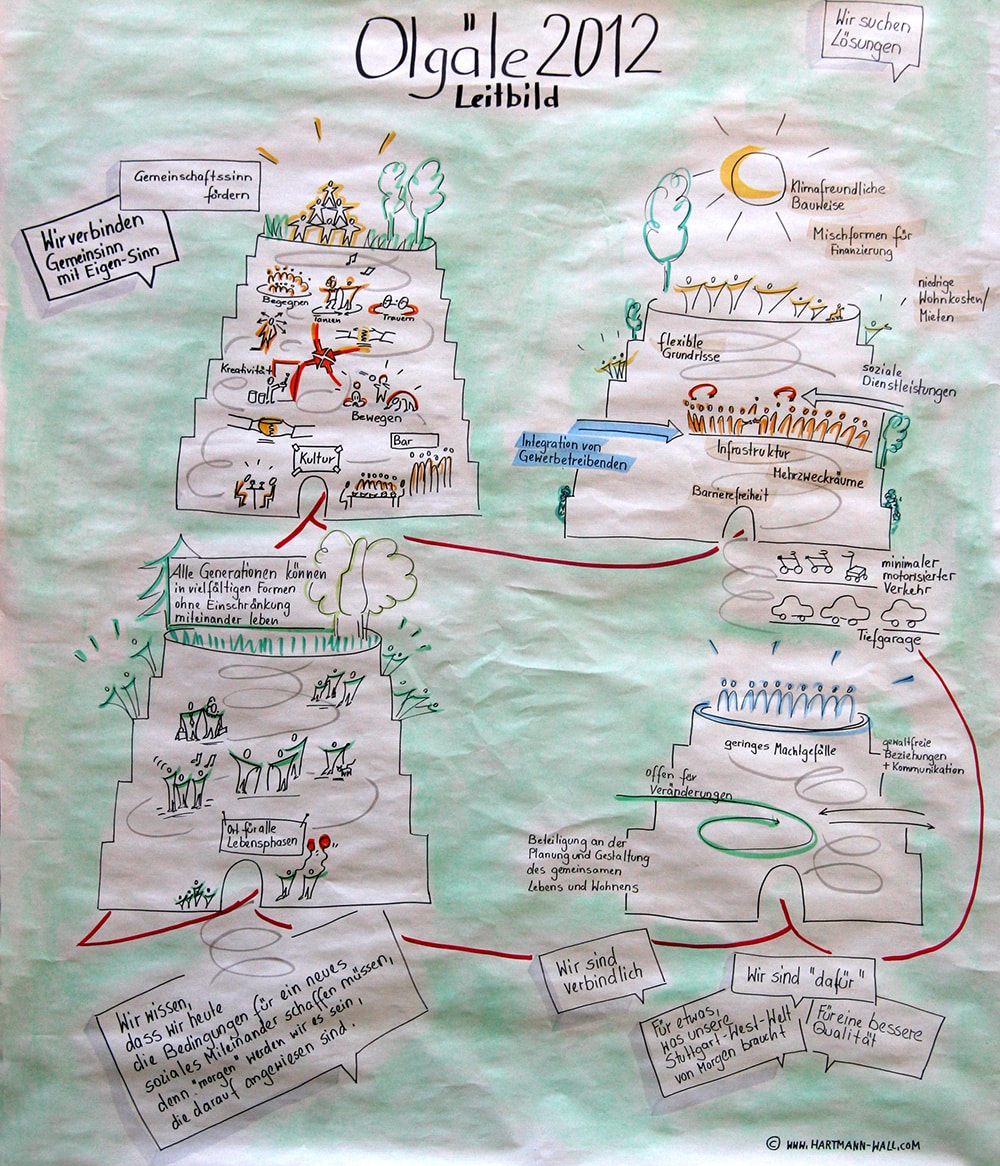 Olgäle 2012
Leitbild
Wir suchen
Lösungen
Gemeinschaftssinn
fördern
Wir verbinden
Gemeinsinn
mit Eigen-Sinn
Begegnen
Tanzen
Trauern
Kreativität
Bewegen
Kultur
Bar
Klimafreundliche
Bauweise
Mischformen für
Finanzierung
niedrige
Wohnkosten/
Mieten
flexible
Grundrisse
soziale
Dienstleistungen
Integration von
Gewerbetreibenden
Infrastruktur
Mehrzweckräume
Barrierefreiheit
minimaler
motorisierter
Verkehr
Tiefgarage
Alle Generationen können
in vielfältigen Formen
ohne Einschränkung
miteinander leben
Ort für alle
Lebensphasen
geringes Machtgefälle
gewaltfreie
Beziehungen
+ Kommunikation
offen für
Veränderungen
Beteiligung an der
Planung und Gestaltung
des gemeinsamen
Lebens und Wohnens
Wir wissen,
dass wir heute
die Bedingungen für ein neues
soziales Miteinander schaffen müssen,
denn "morgen" werden wir es sein,
die darauf angewiesen sind.
Wir sind
verbindlich
Wir sind "dafür"
Für etwas,
was unsere
Stuttgart-West-Welt
von Morgen braucht
Für eine bessere
Qualität
© WWW.HARTMANN-WALL.COM